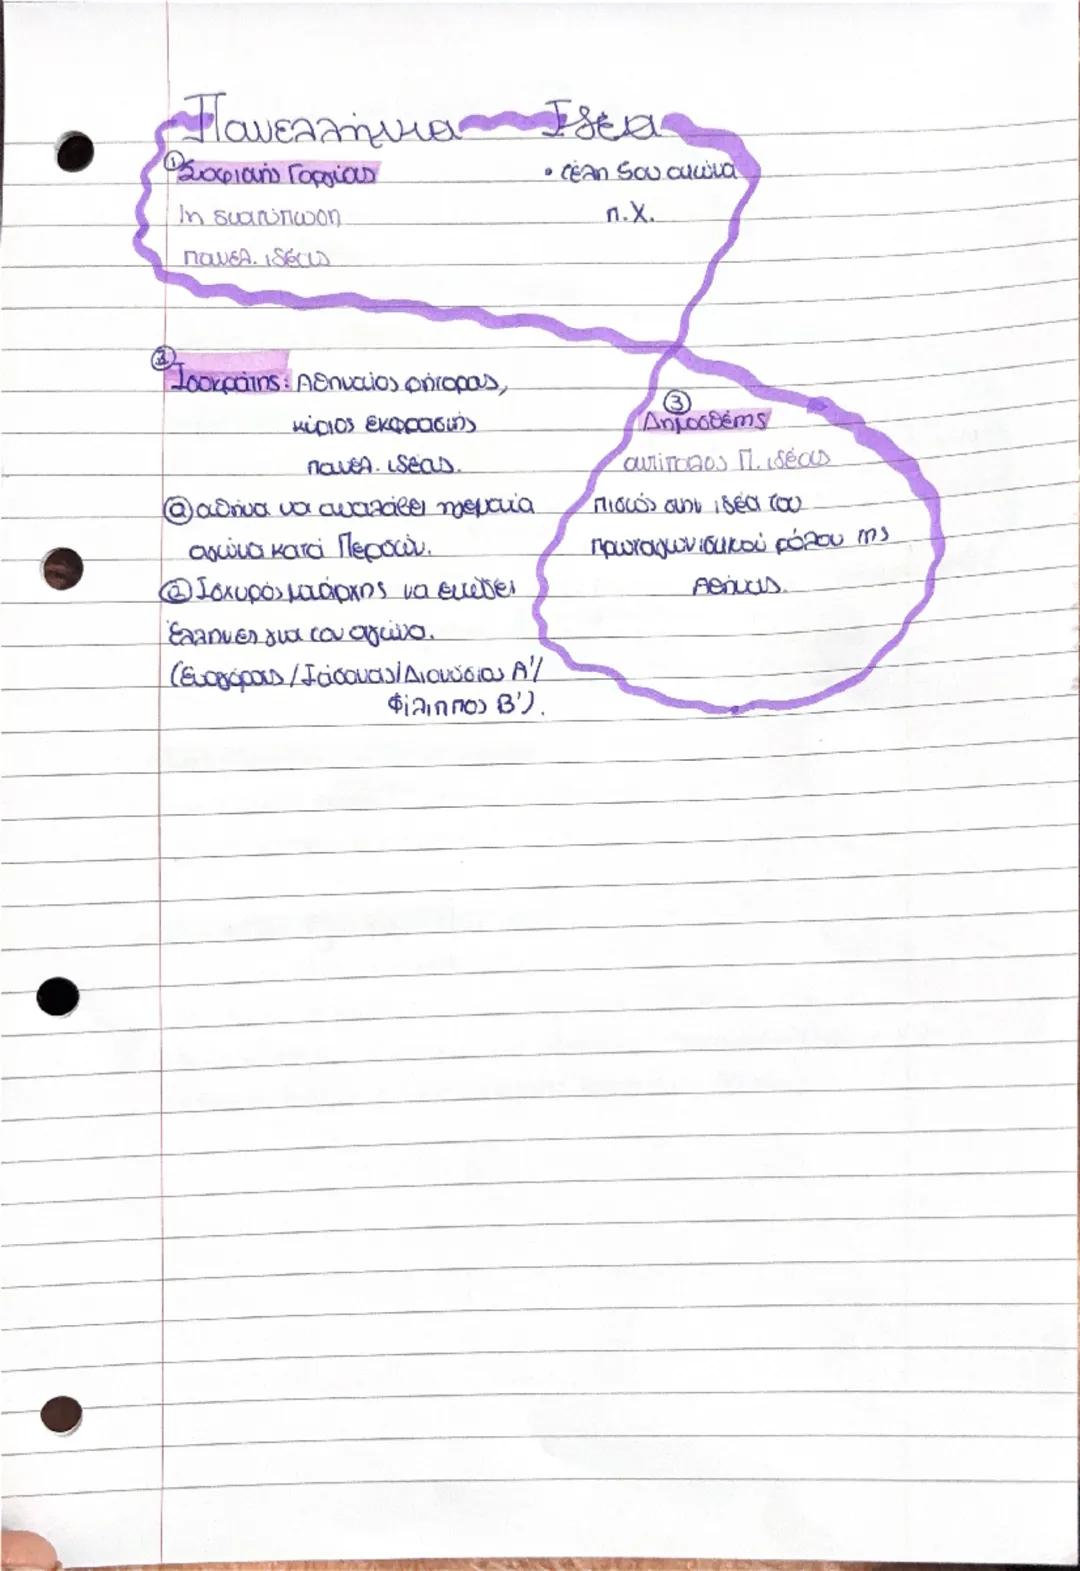 Πανελλήνια Ιδέα
① Σοφιστής Γοργίας
1η διατύπωση
πανελ. ιδέας
• τέλη 5ου αιώνα
π.Χ.
② Ισοκράτης: Αθηναίος ρήτορας,
κύριος εκφραστής
πανελ. ιδέας.
① αθήνα να αναλάβει ηγεμονία
αγώνα κατά Περσών.
② Ισχυρός μονάρχης να ενώσει
Έλληνες για τον αγώνα.
(Ευαγόρας/Ιάσονας/Διονύσιος Α'/
Φίλιππος Β').
③
Δημοσθένης
αντίπαλος Π. ιδέας
πιστός στην ιδέα του
πρωταγωνιστικού ρόλου της
Αθήνας.